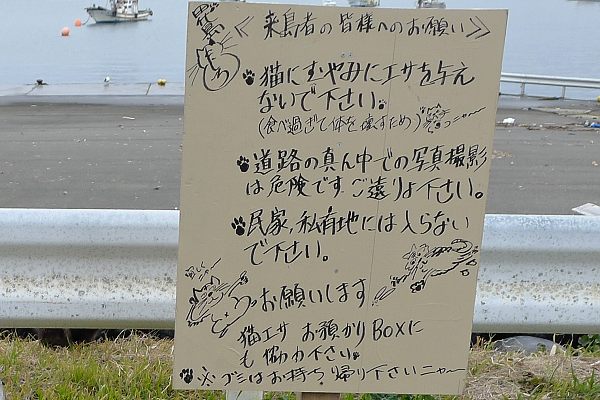 ≪来島者の皆様へのお願い≫
猫にむやみにエサを与え
ないで下さい。
(食べ過ぎて体を壊すため)
ニャ〜
道路の真ん中での写真撮影
は危険ですご遠りょ下さい。
民家、私有地には入らない
で下さい。
お願いします
猫エサ お預かりBOXに
も協力下さい。
※ゴミはお持ち帰り下さいニャ〜